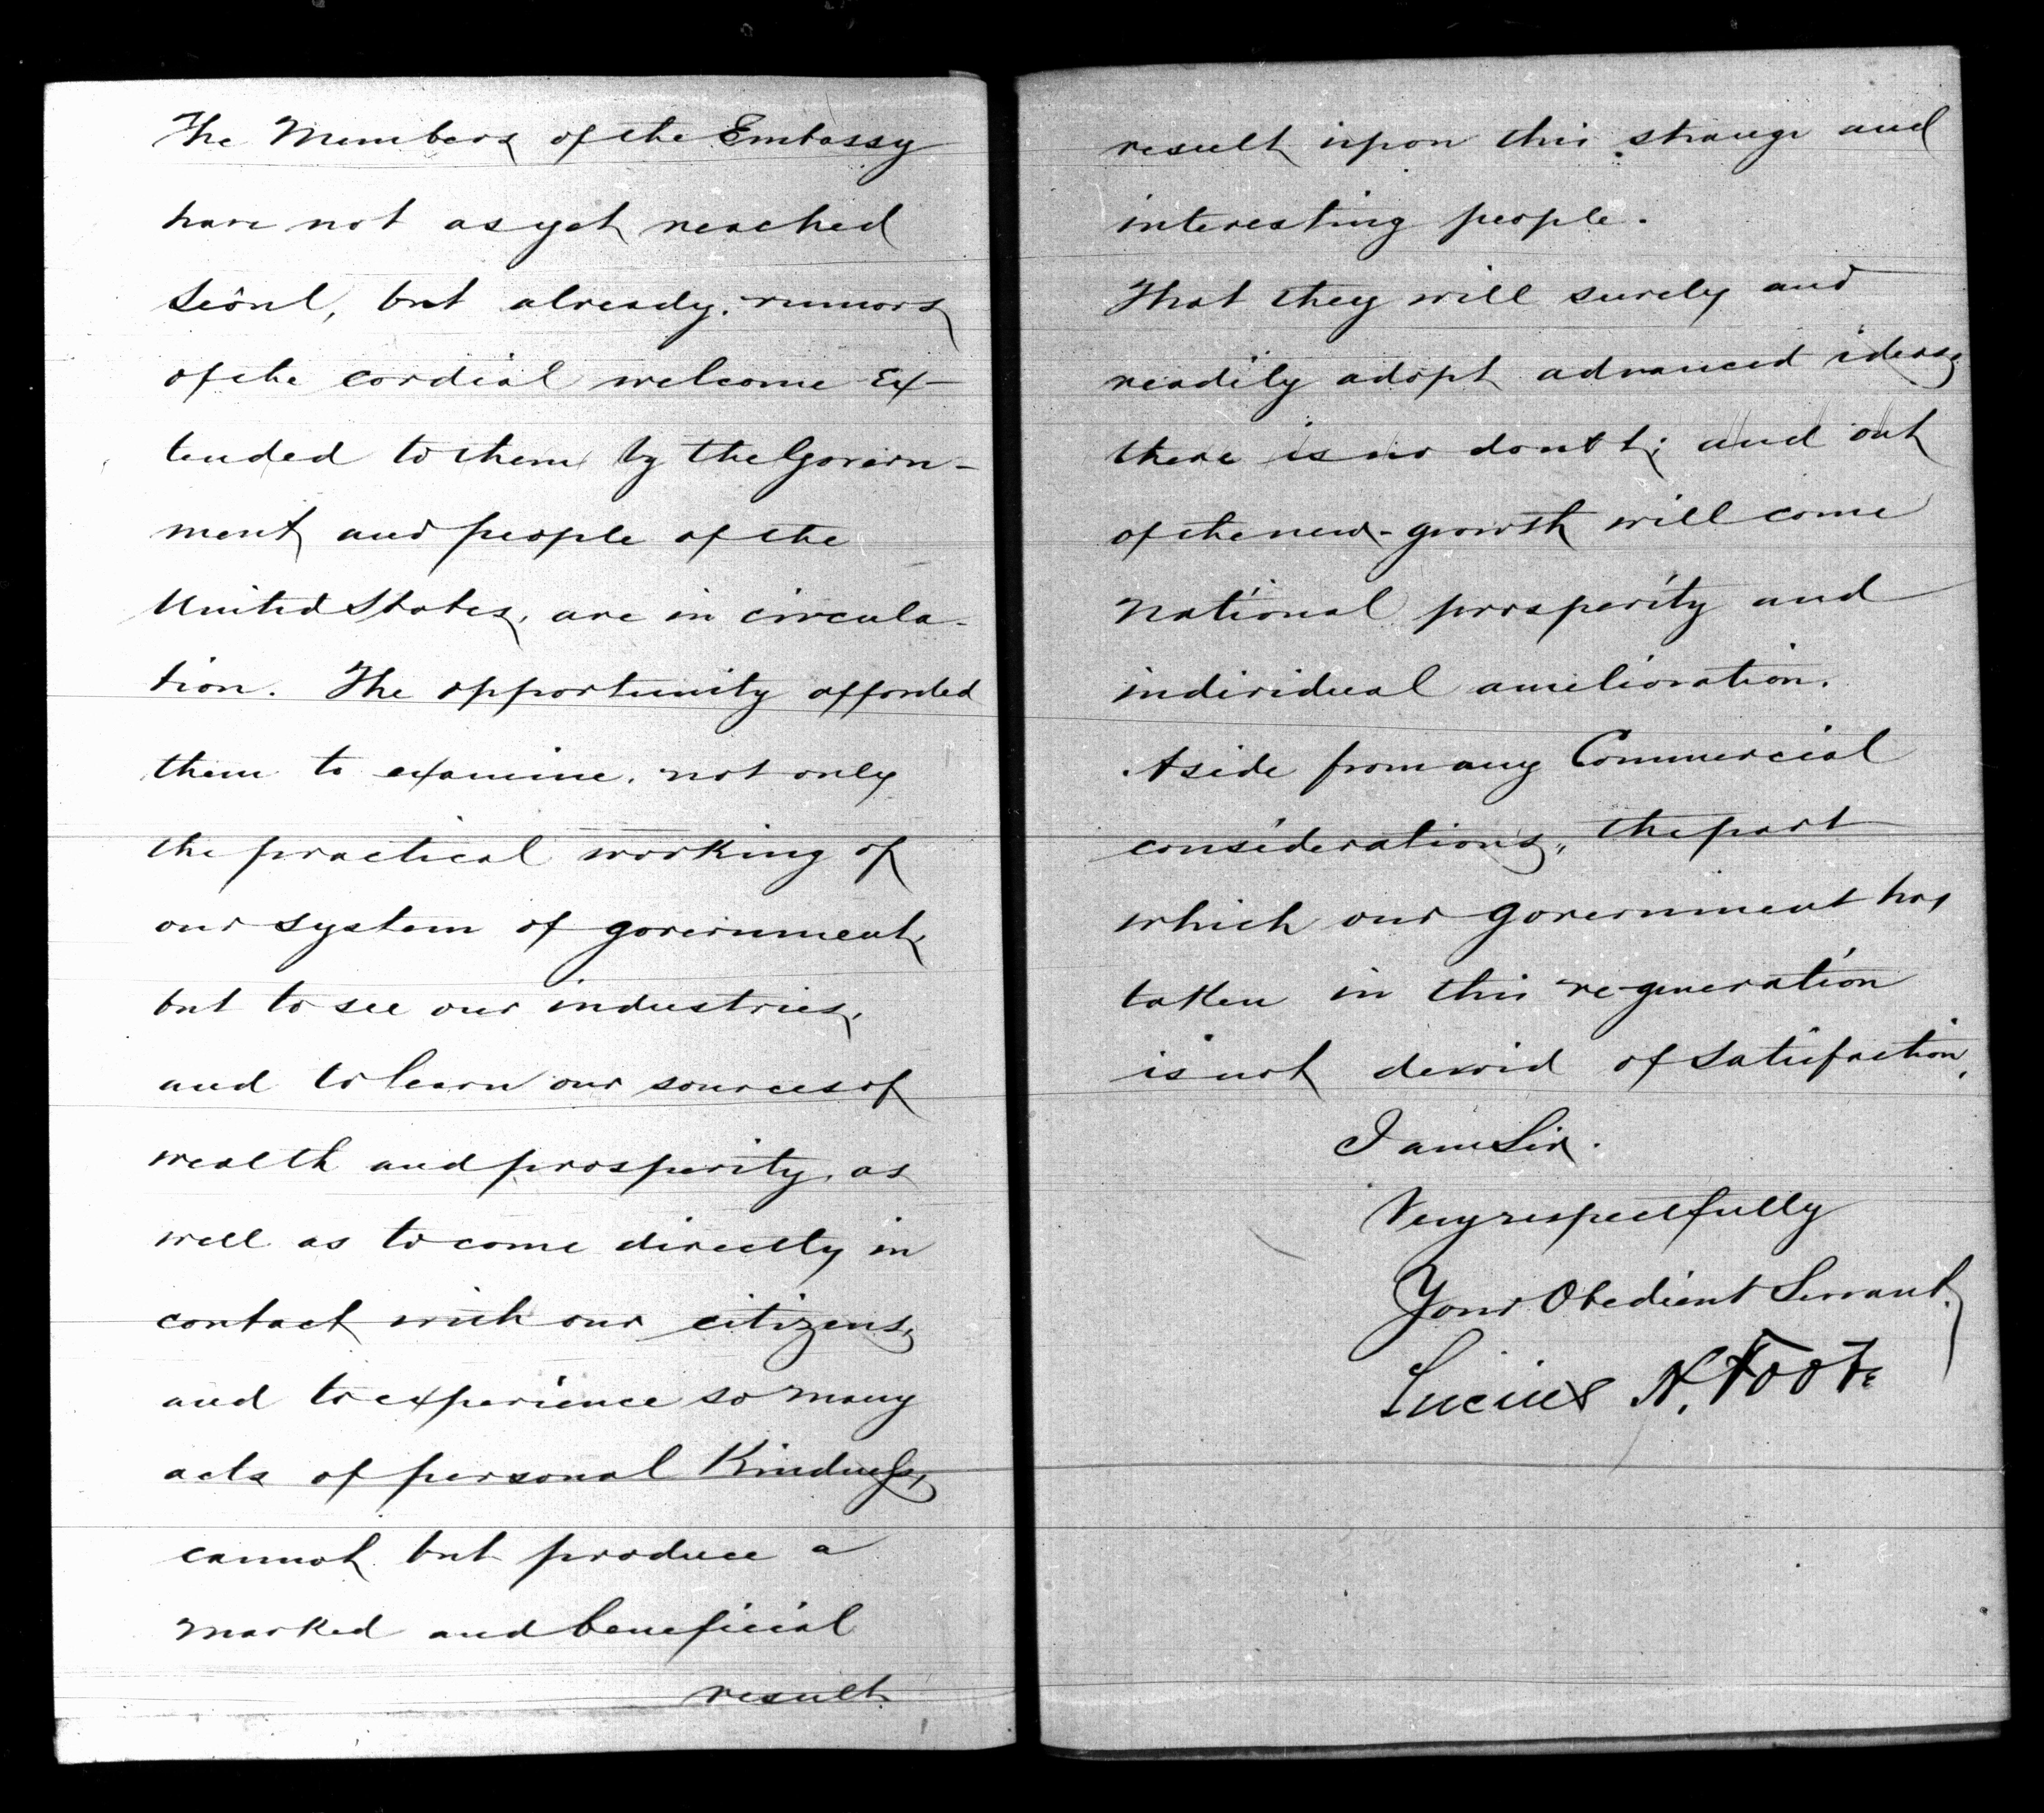 The Members of the Embassy
have not as yet reached
Seôul, but already, rumors
of the cordial welcome ex-
tended to them by the Govern-
ment and people of the
United States, are in circula-
tion. The opportunity afforded
them to examine, not only
the practical working of
our system of government,
but to see our industries,
and to learn our sources of
wealth and prosperity, as
well as to come directly in
contact with our citizens,
and to experience so many
acts of personal Kindness,
cannot but produce a
marked and beneficial
result
result upon this strange and
interesting people.
That they will surely and
readily adopt advanced ideas,
there is no doubt; and out
of the new-growth will come
national prosperity and
individual amelioration.
Aside from any Commercial
considerations, the part
which our government has
taken in this re-generation
is not devoid of satisfaction,
I am Sir.
Very respectfully
Your Obedient Servant,
Lucius H. Foote